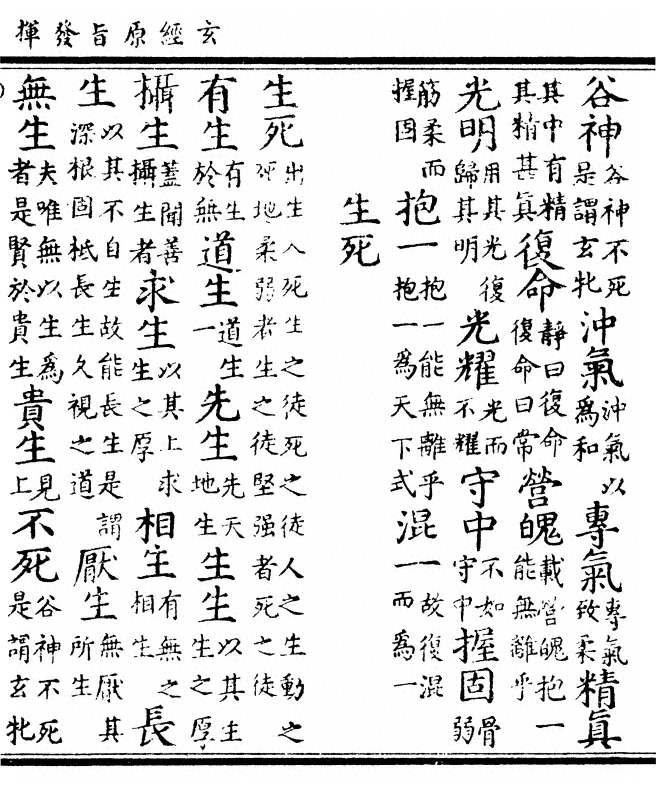 玄經原旨發揮
谷神谷神不死是謂玄牝沖氣沖氣以為和專氣專氣致柔精眞
其中有精其精甚眞復命靜曰復命復命曰常營魄載營魄抱一能無離乎
光明用其光復歸其明光耀光而不耀守中不如守中握固骨弱
筋柔而握固抱一抱一能無離乎抱一爲天下式混一故復混而爲一
生死
生死出生入死生之徒死之徒人之生動之死地柔弱者生之徒堅强者死之徒
有生有生於無道生道生一先生先天地生生生以其生生之厚
攝生蓋聞善攝生者求生以其上求生之厚相生有無之相生長
生以其不自生故能長生是謂深根固柢長生久視之道厭生無厭其所生
無生夫唯無以生爲者是賢於貴生貴生見上不死谷神不死是謂玄牝